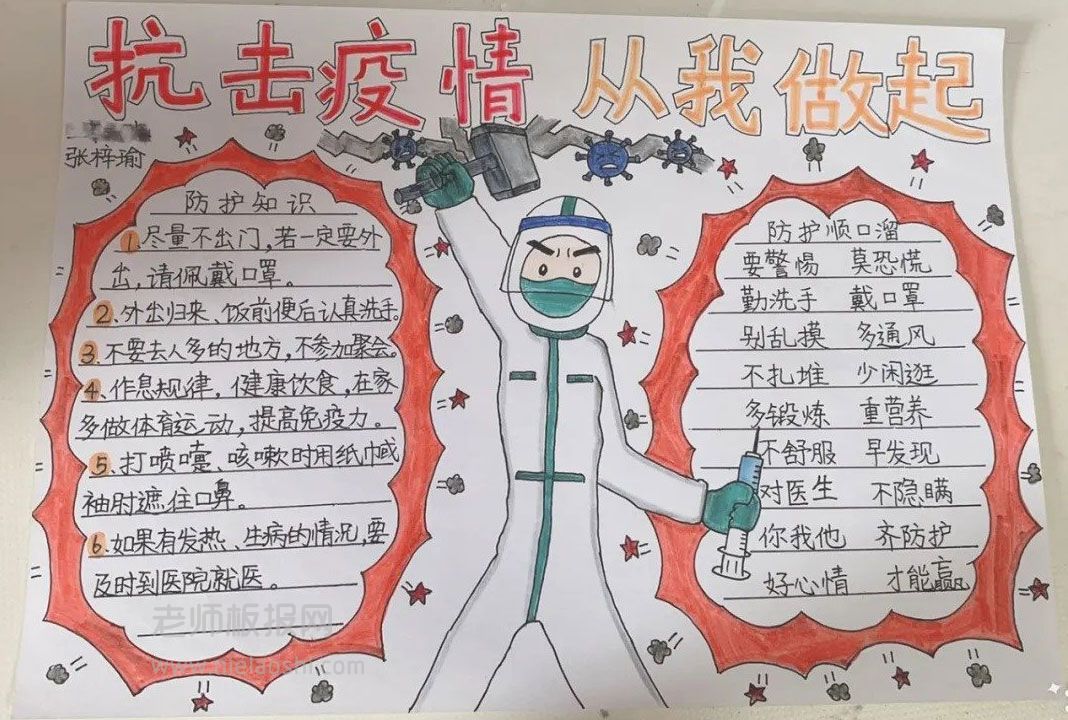 抗击疫情 从我做起
张梓瑜
防护知识
1.尽量不出门,若一定要外
出,请佩戴口罩。
2、外出归来、饭前便后认真洗手。
3、不要去人多的地方,不参加聚会。
4、作息规律,健康饮食,在家
多做体育运动,提高免疫力。
5、打喷嚏、咳嗽时用纸巾或
袖肘遮住口鼻。
6、如果有发热、生病的情况,要
及时到医院就医。
防护顺口溜
要警惕 莫恐慌
勤洗手 戴口罩
别乱摸 多通风
不扎堆 少闲逛
多锻炼 重营养
不舒服 早发现
对医生 不隐瞒
你我他 齐防护
好心情 才能赢
老师板报网